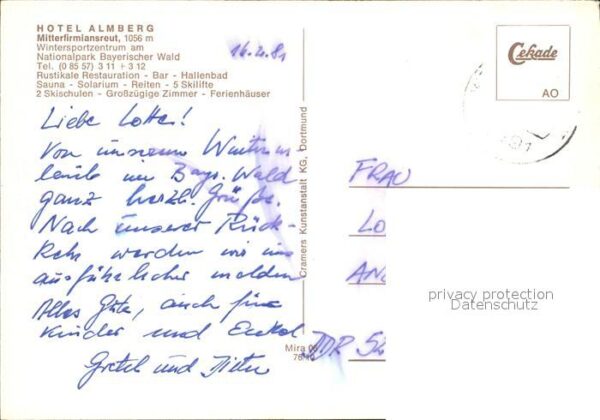 HOTEL ALMBERG
Mitterfirmiansreut, 1056 m
Wintersportzentrum am
Nationalpark Bayerischer Wald
Tel. (0 85 57) 3 11 + 3 12
Rustikale Restauration - Bar - Hallenbad
Sauna - Solarium - Reiten - 5 Skilifte
2 Skischulen - Großzügige Zimmer - Ferienhäuser
16.2.81
Cekade
AO
Liebe Lotte!
Von unserem Winterur
laub im Bayr. Wald
ganz herzl. Grüße.
Nach unserer Rück-
kehr werden wir uns
ausführlicher melden
Alles Gute, auch für
Kinder und Enkel
Gretel und Dieter
Cramers Kunstanstalt KG, Dortmund
Mira
FRAU
LO
AN
DDR
privacy protection
Datenschutz